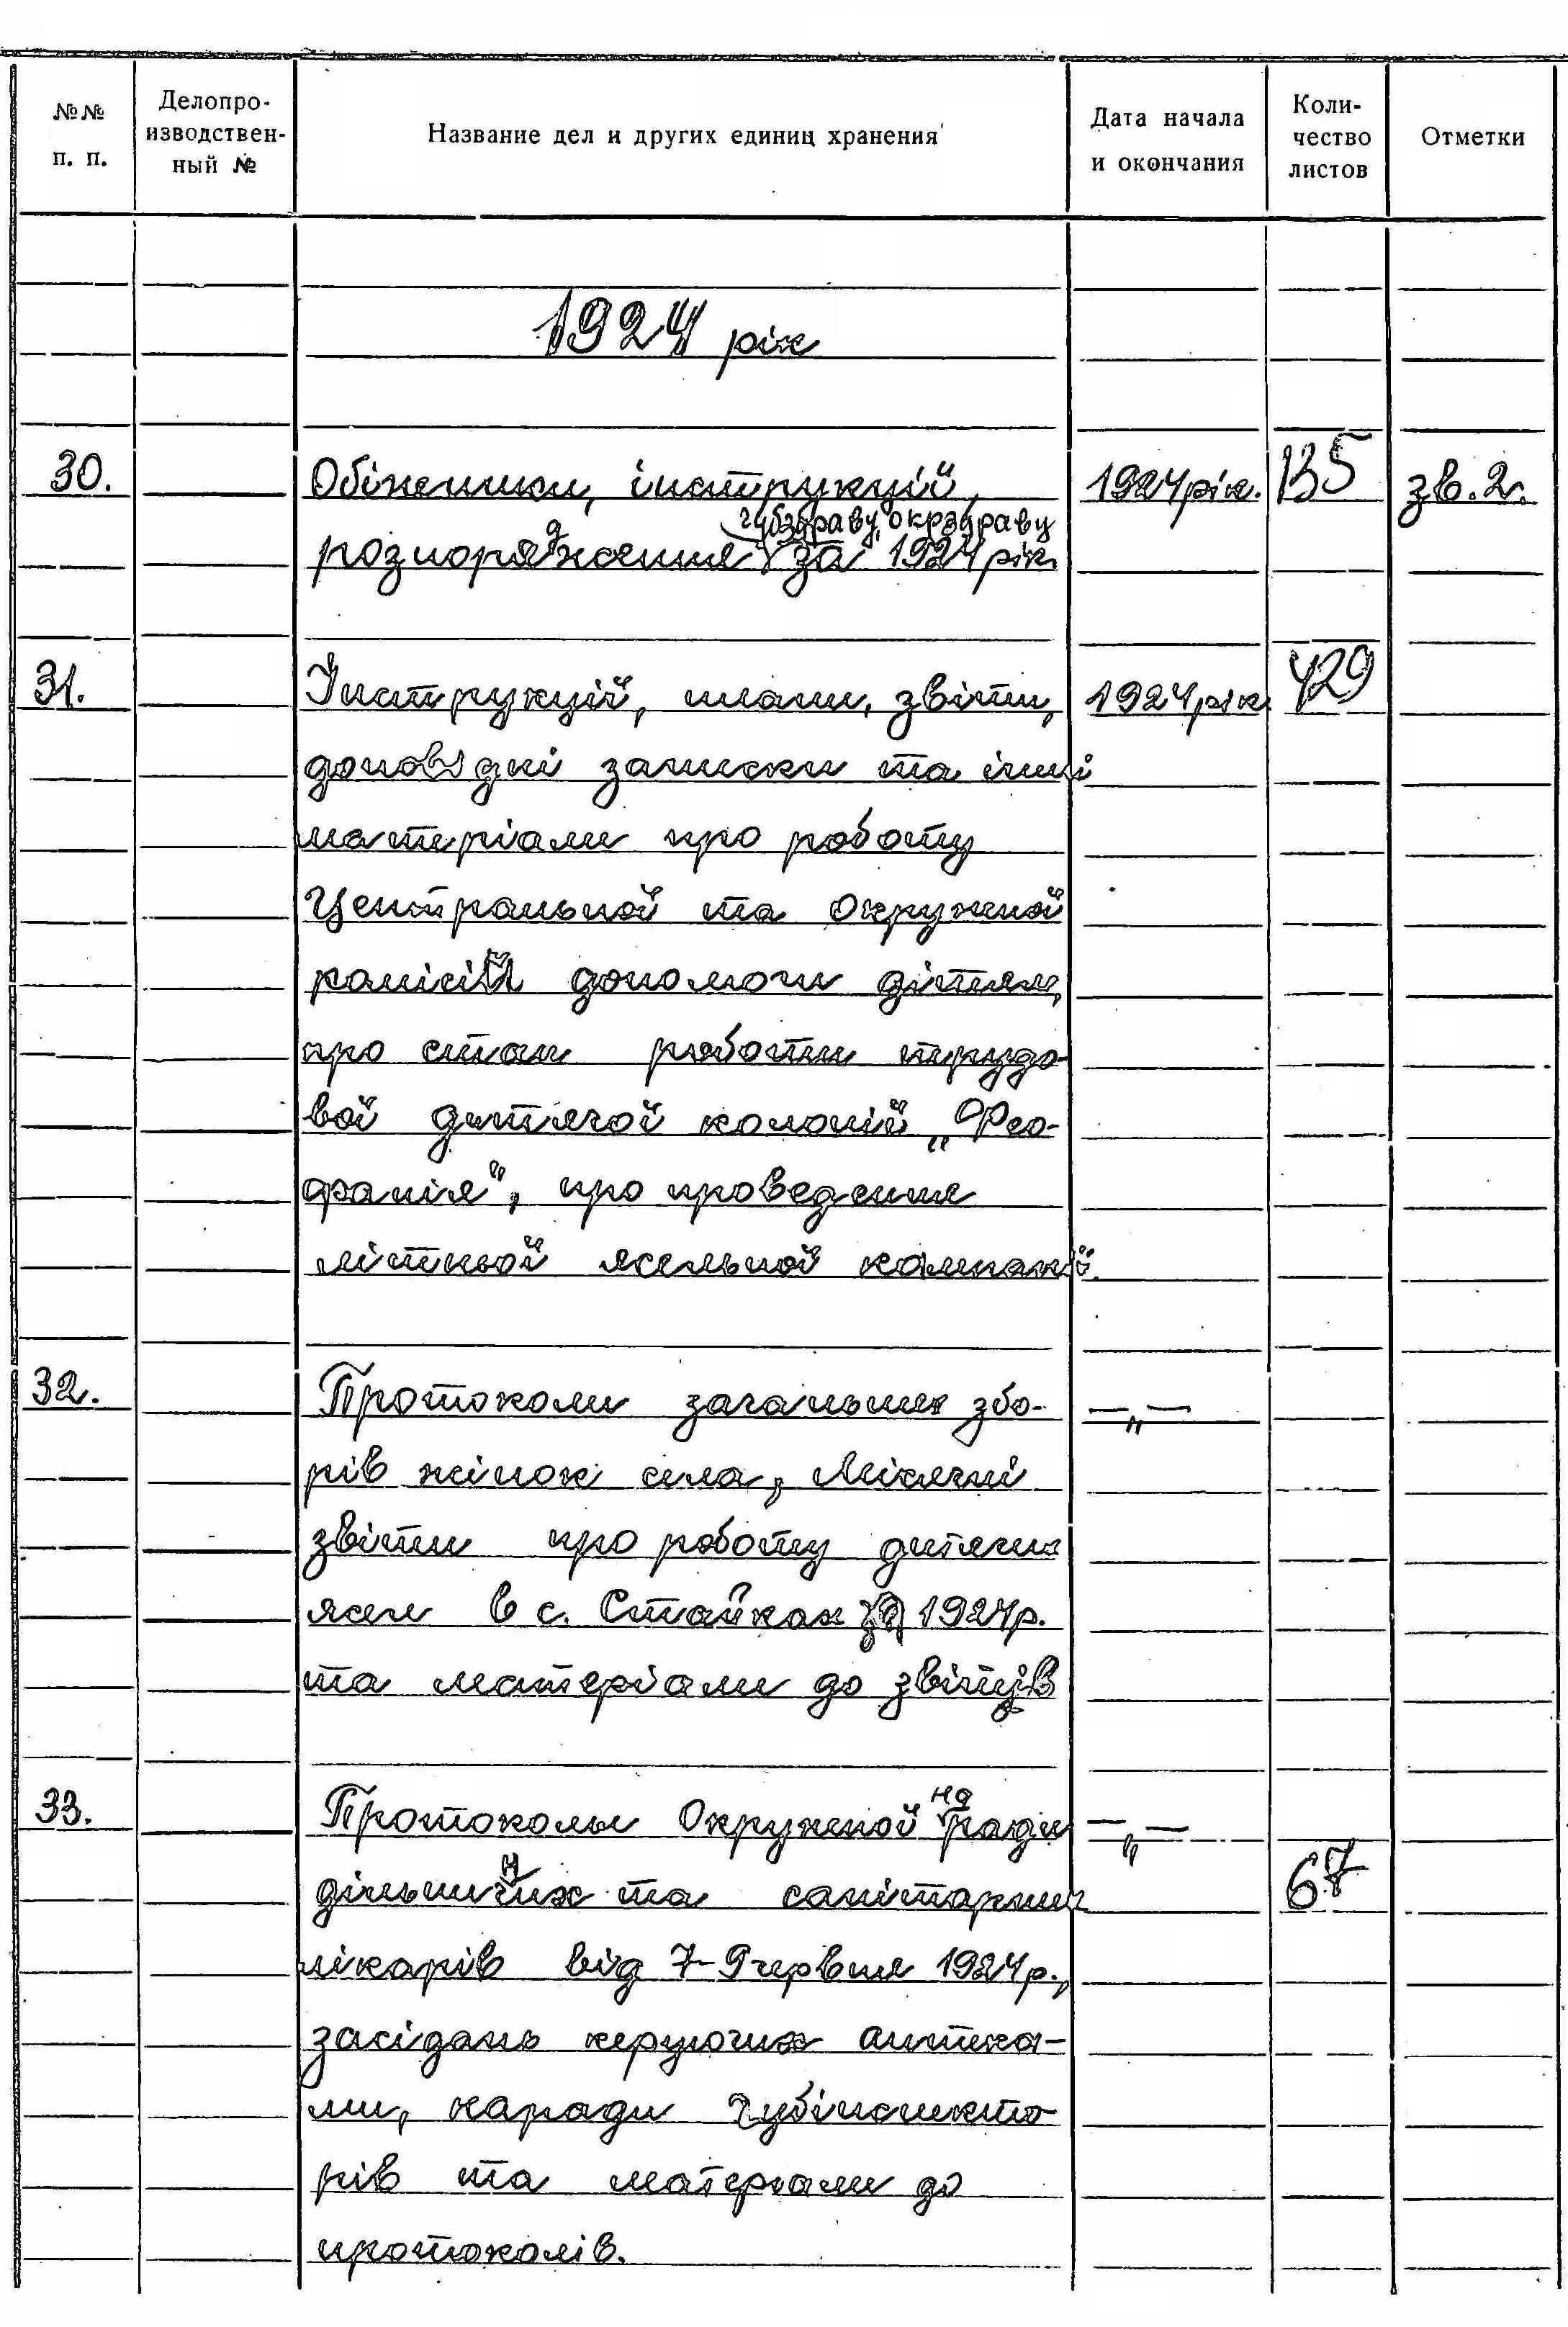 №№ п. п.
Делопро-
изводствен-
ный №
Название дел и других единиц хранения
Дата начала
и окончания
Коли-
чество
листов
Отметки
1924 рік
30. Обіжники, інструкцій, 1924 рік. 135 зв. 2.
губздраву, окрздраву
розпорядження за 1924 рік
31. Інструкцій, плани, звіти, 1924 рік 429
доповідні записки та інші
матеріали про роботу
Центральной та Окружной
комісій допомоги дітям,
про стан роботи трудо-
вої дитячої колонії „Фео-
фанія", про проведення
літньої ясельної кампанії.
32. Протоколи загальних збо- —„—
рів жінок села, Місячні
звіти про роботу дитячих
ясел в с. Стайках за 1924 р.
та матеріали до звітів
33. Протоколы Окружной наради —„—
дільничних та санітарних 67
лікарів від 7-9 червня 1924 р.,
засідань керуючих аптека-
ми, наради губінспекто-
рів та матеріали до
протоколів.